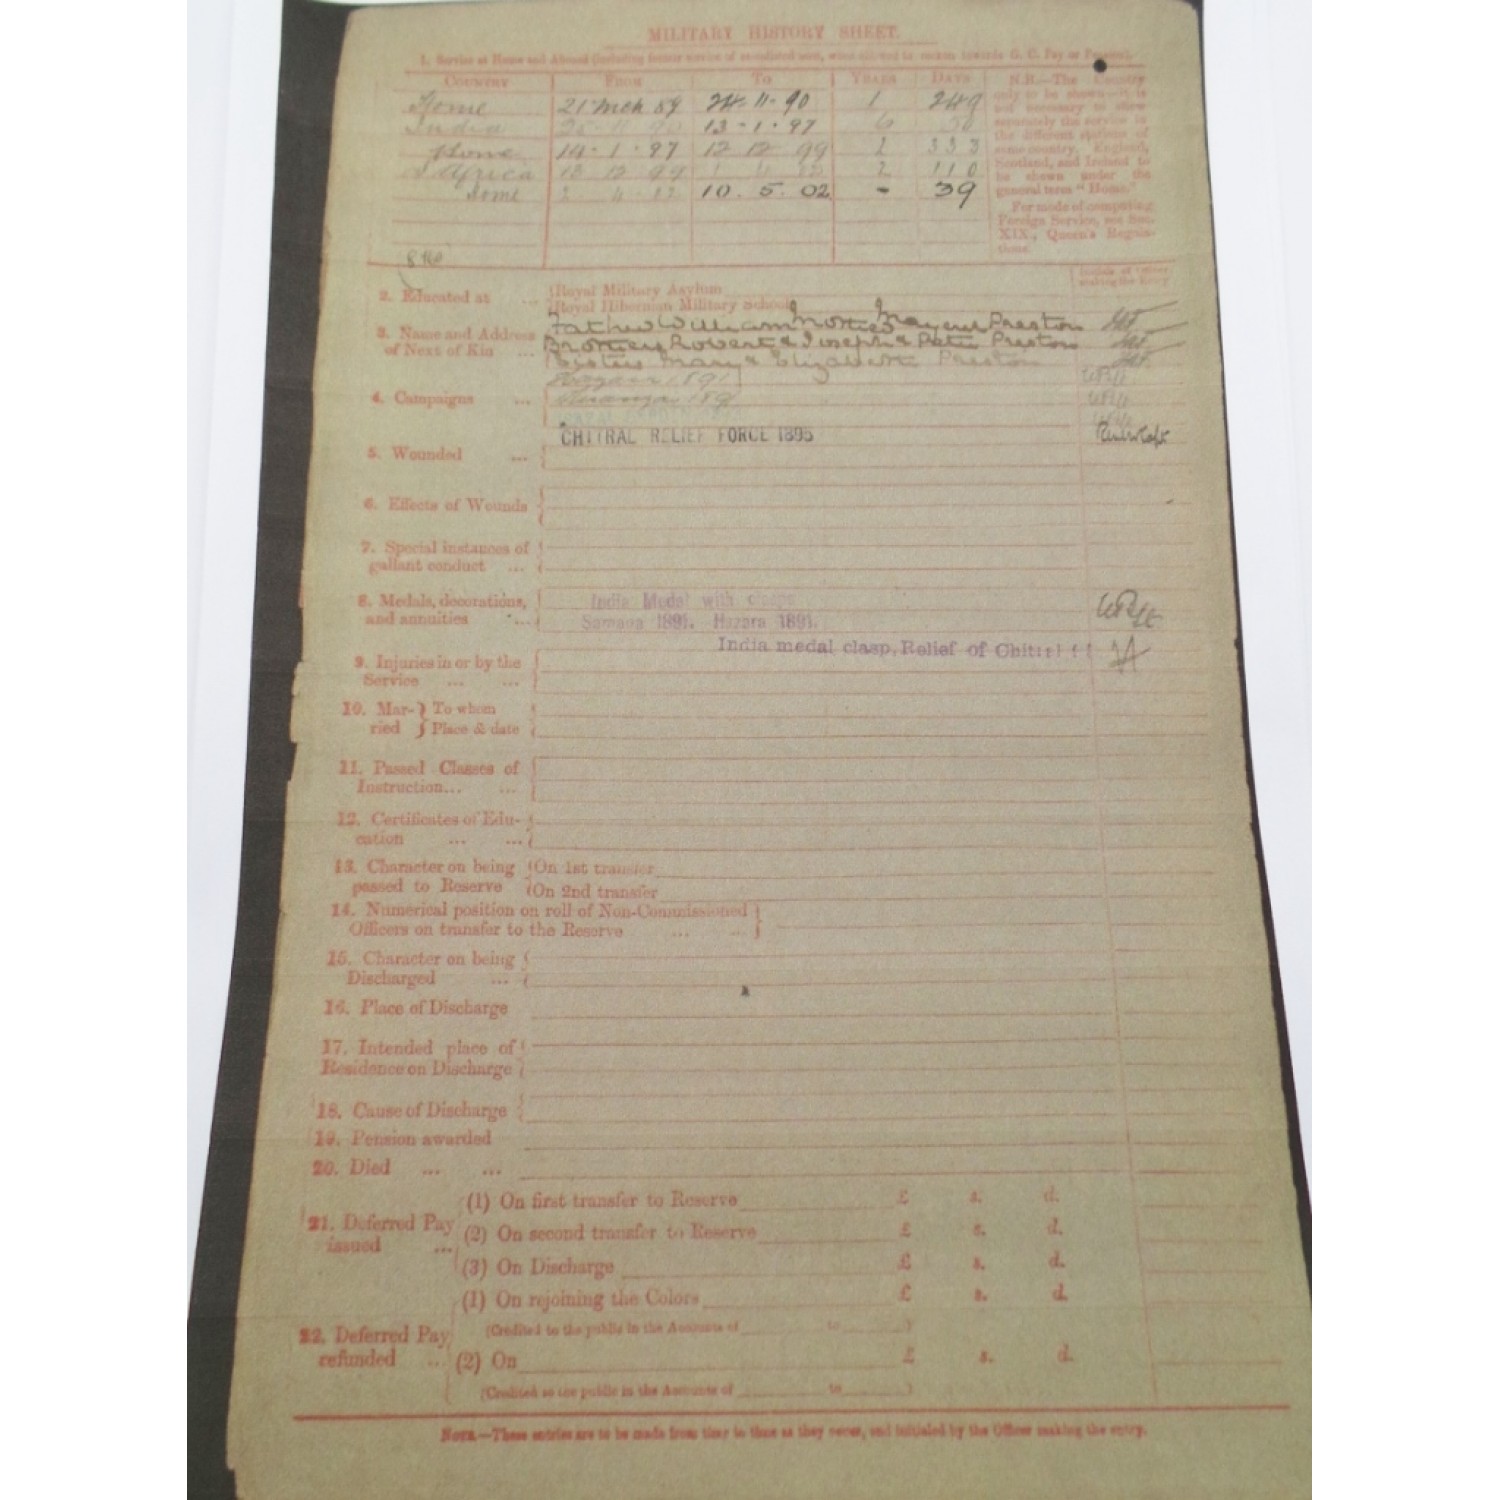 MILITARY HISTORY SHEET.
1. Service at Home and Abroad (including former service of re-enlisted men, when allowed to reckon towards G. C. Pay or Pension).
COUNTRY FROM TO YEARS DAYS
Home 21 Mch 89 24-11-90 1 249
India 25-11-90 13-1-97 6 50
Home 14-1-97 12 12 99 2 333
S Africa 13 12 99 2 110
Home 10.5.02 - 39
N.B.—The Country
only to be shown—it is
not necessary to show
separately the service in
the different stations of
same country. England,
Scotland, and Ireland to
be shown under the
general term "Home."
For mode of computing
Foreign Service, see Sec.
XIX., Queen's Regula-
tions.
Initials of Officer
making the Entry
2. Educated at ... Royal Military Asylum
Royal Hibernian Military School
3. Name and Address
of Next of Kin ...
Father William Mother Preston
Brothers Robert & Joseph & Peter Preston
Sisters Mary & Elizabeth Preston
4. Campaigns ...
Hazara 1891
Samana 189
CHITRAL RELIEF FORCE 1895
5. Wounded ...
6. Effects of Wounds
7. Special instances of
gallant conduct ...
8. Medals, decorations,
and annuities ...
India Medal with clasps
Samana 1891. Hazara 1891.
India medal clasp, Relief of Chitral
9. Injuries in or by the
Service ... ...
10. Mar- } To whom
ried } Place & date
11. Passed Classes of
Instruction... ...
12. Certificates of Edu-
cation ... ...
13. Character on being
passed to Reserve
On 1st transfer
On 2nd transfer
14. Numerical position on roll of Non-Commissioned
Officers on transfer to the Reserve ... ...
15. Character on being
Discharged ...
16. Place of Discharge
17. Intended place of
Residence on Discharge
18. Cause of Discharge
19. Pension awarded
20. Died ... ...
21. Deferred Pay
issued ...
(1) On first transfer to Reserve £ s. d.
(2) On second transfer to Reserve £ s. d.
(3) On Discharge £ s. d.
22. Deferred Pay
refunded ...
(1) On rejoining the Colors £ s. d.
(Credited to the public in the Accounts of to )
(2) On £ s. d.
(Credited to the public in the Accounts of to )
NOTE—These entries are to be made from time to time as they occur, and initialed by the Officer making the entry.